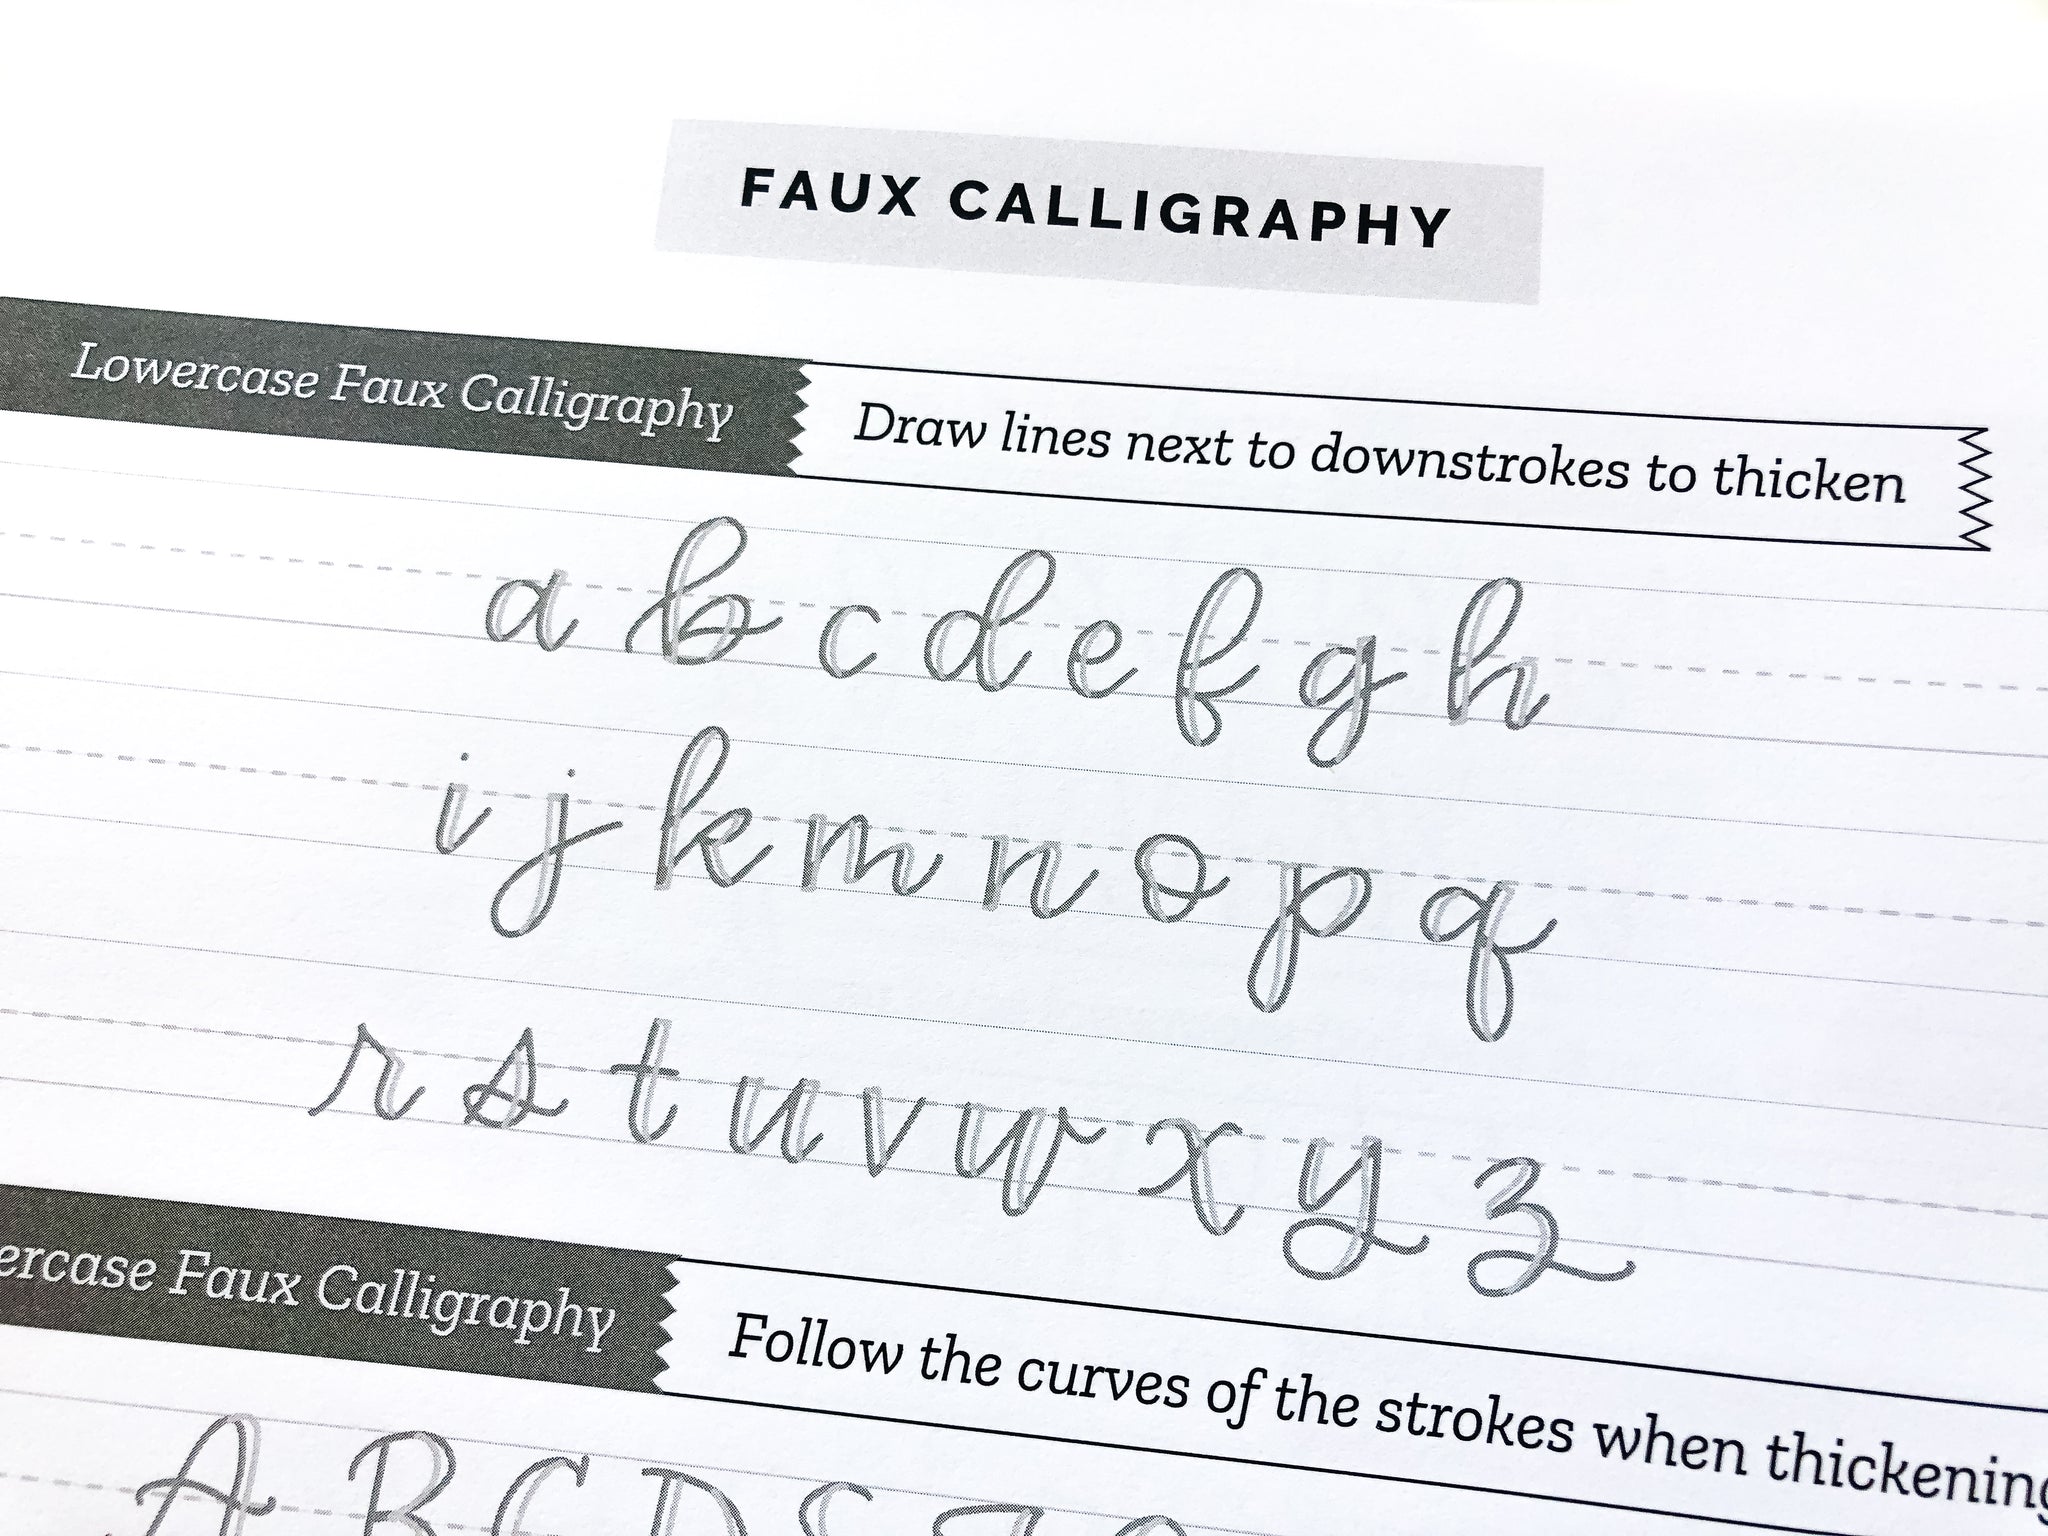 FAUX CALLIGRAPHY
Lowercase Faux Calligraphy Draw lines next to downstrokes to thicken
a b c d e f g h
i j k m n o p q
r s t u v w x y z
ercase Faux Calligraphy Follow the curves of the strokes when thickening
A B C D